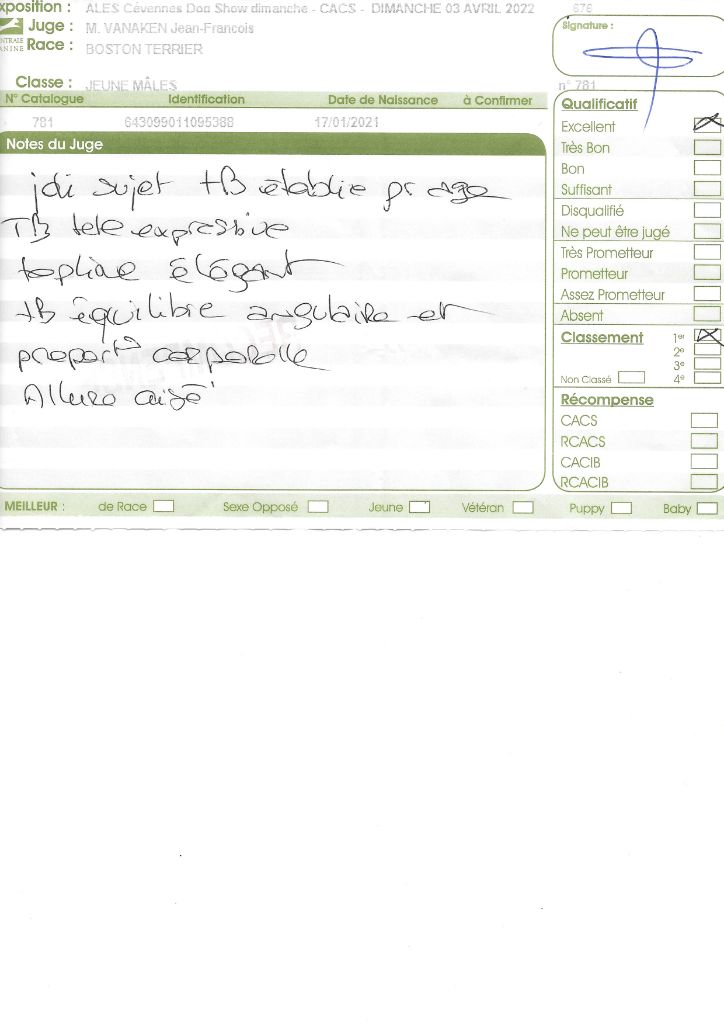 xposition : ALES Cévennes Dog Show dimanche - CACS - DIMANCHE 03 AVRIL 2022 676
NTRALE Juge : M. VANAKEN Jean-Francois
ANINE Race : BOSTON TERRIER
Signature :
Classe : JEUNE MÂLES n° 781
N° Catalogue Identification Date de Naissance à Confirmer
781 643099011095388 17/01/2021
Notes du Juge
joli sujet TB établie pr age
TB tete expressive
topline élégant
TB équilibre angulaire et
proport° corporelle
Allure aisé
Qualificatif
Excellent
Très Bon
Bon
Suffisant
Disqualifié
Ne peut être jugé
Très Prometteur
Prometteur
Assez Prometteur
Absent
Classement 1er
2e
3e
Non Classé 4e
Récompense
CACS
RCACS
CACIB
RCACIB
MEILLEUR : de Race Sexe Opposé Jeune Vétéran Puppy Baby